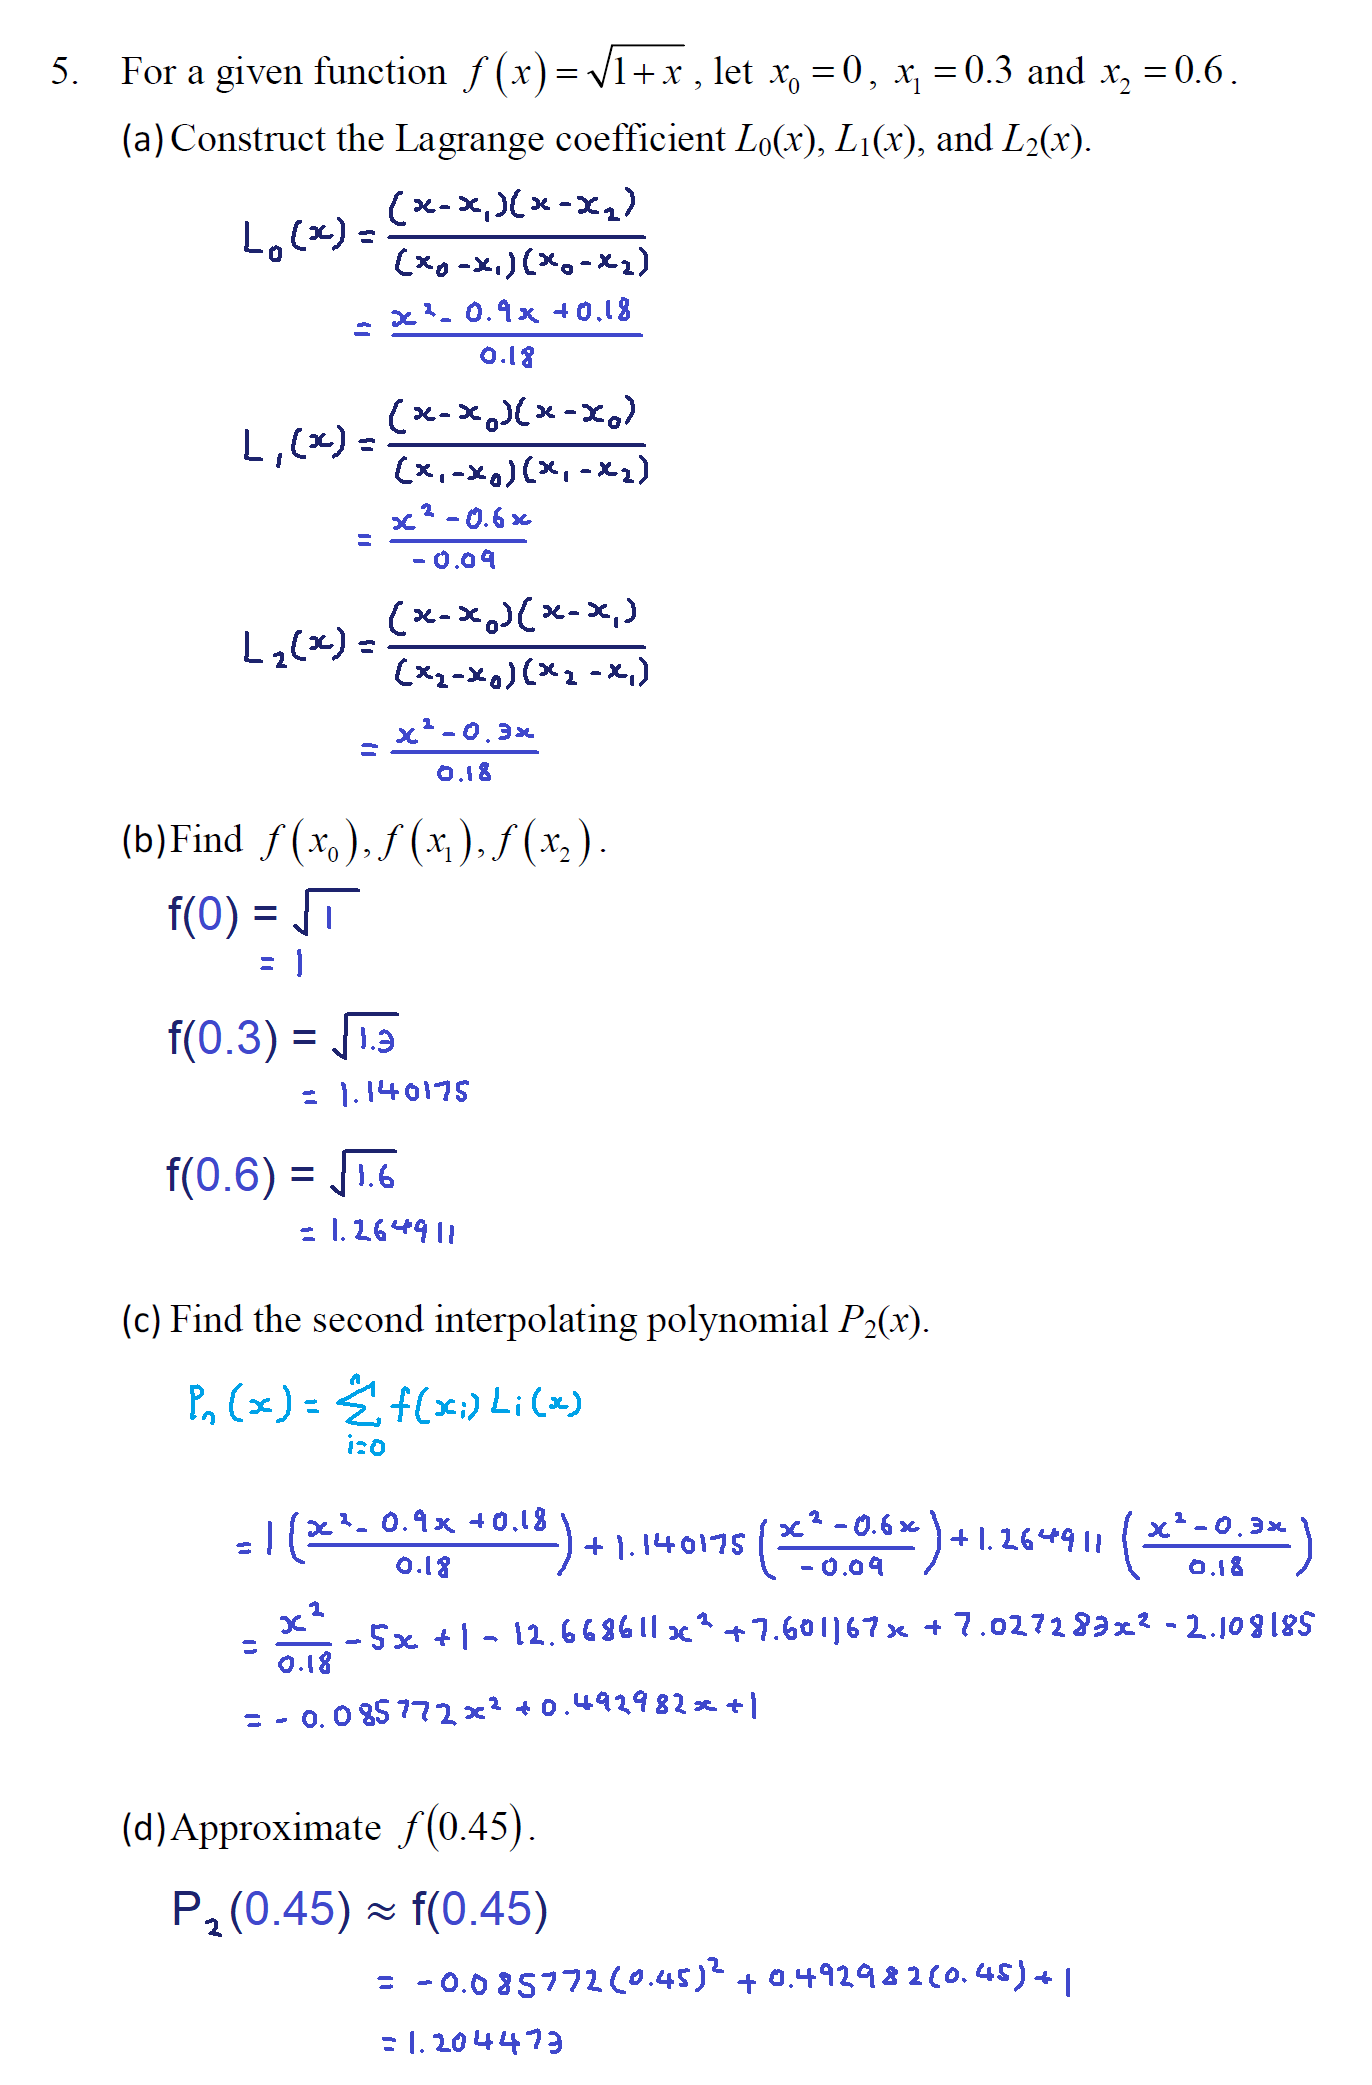 5. For a given function f(x) = √(1+x), let x₀ = 0, x₁ = 0.3 and x₂ = 0.6.
(a) Construct the Lagrange coefficient L₀(x), L₁(x), and L₂(x).
L₀(x) = (x-x₁)(x-x₂) / (x₀-x₁)(x₀-x₂)
= x²-0.9x+0.18 / 0.18
L₁(x) = (x-x₀)(x-x₀) / (x₁-x₀)(x₁-x₂)
= x²-0.6x / -0.09
L₂(x) = (x-x₀)(x-x₁) / (x₂-x₀)(x₂-x₁)
= x²-0.3x / 0.18
(b) Find f(x₀), f(x₁), f(x₂).
f(0) = √1
= 1
f(0.3) = √1.3
= 1.140175
f(0.6) = √1.6
= 1.264911
(c) Find the second interpolating polynomial P₂(x).
Pₙ(x) = Σⁿᵢ₌₀ f(xᵢ) Lᵢ(x)
= 1(x²-0.9x+0.18 / 0.18) + 1.140175(x²-0.6x / -0.09) + 1.264911(x²-0.3x / 0.18)
= x²/0.18 - 5x + 1 - 12.668611x² + 7.601167x + 7.027283x² - 2.108185
= -0.085772x² + 0.492982x + 1
(d) Approximate f(0.45).
P₂(0.45) ≈ f(0.45)
= -0.085772(0.45)² + 0.492982(0.45) + 1
= 1.204473